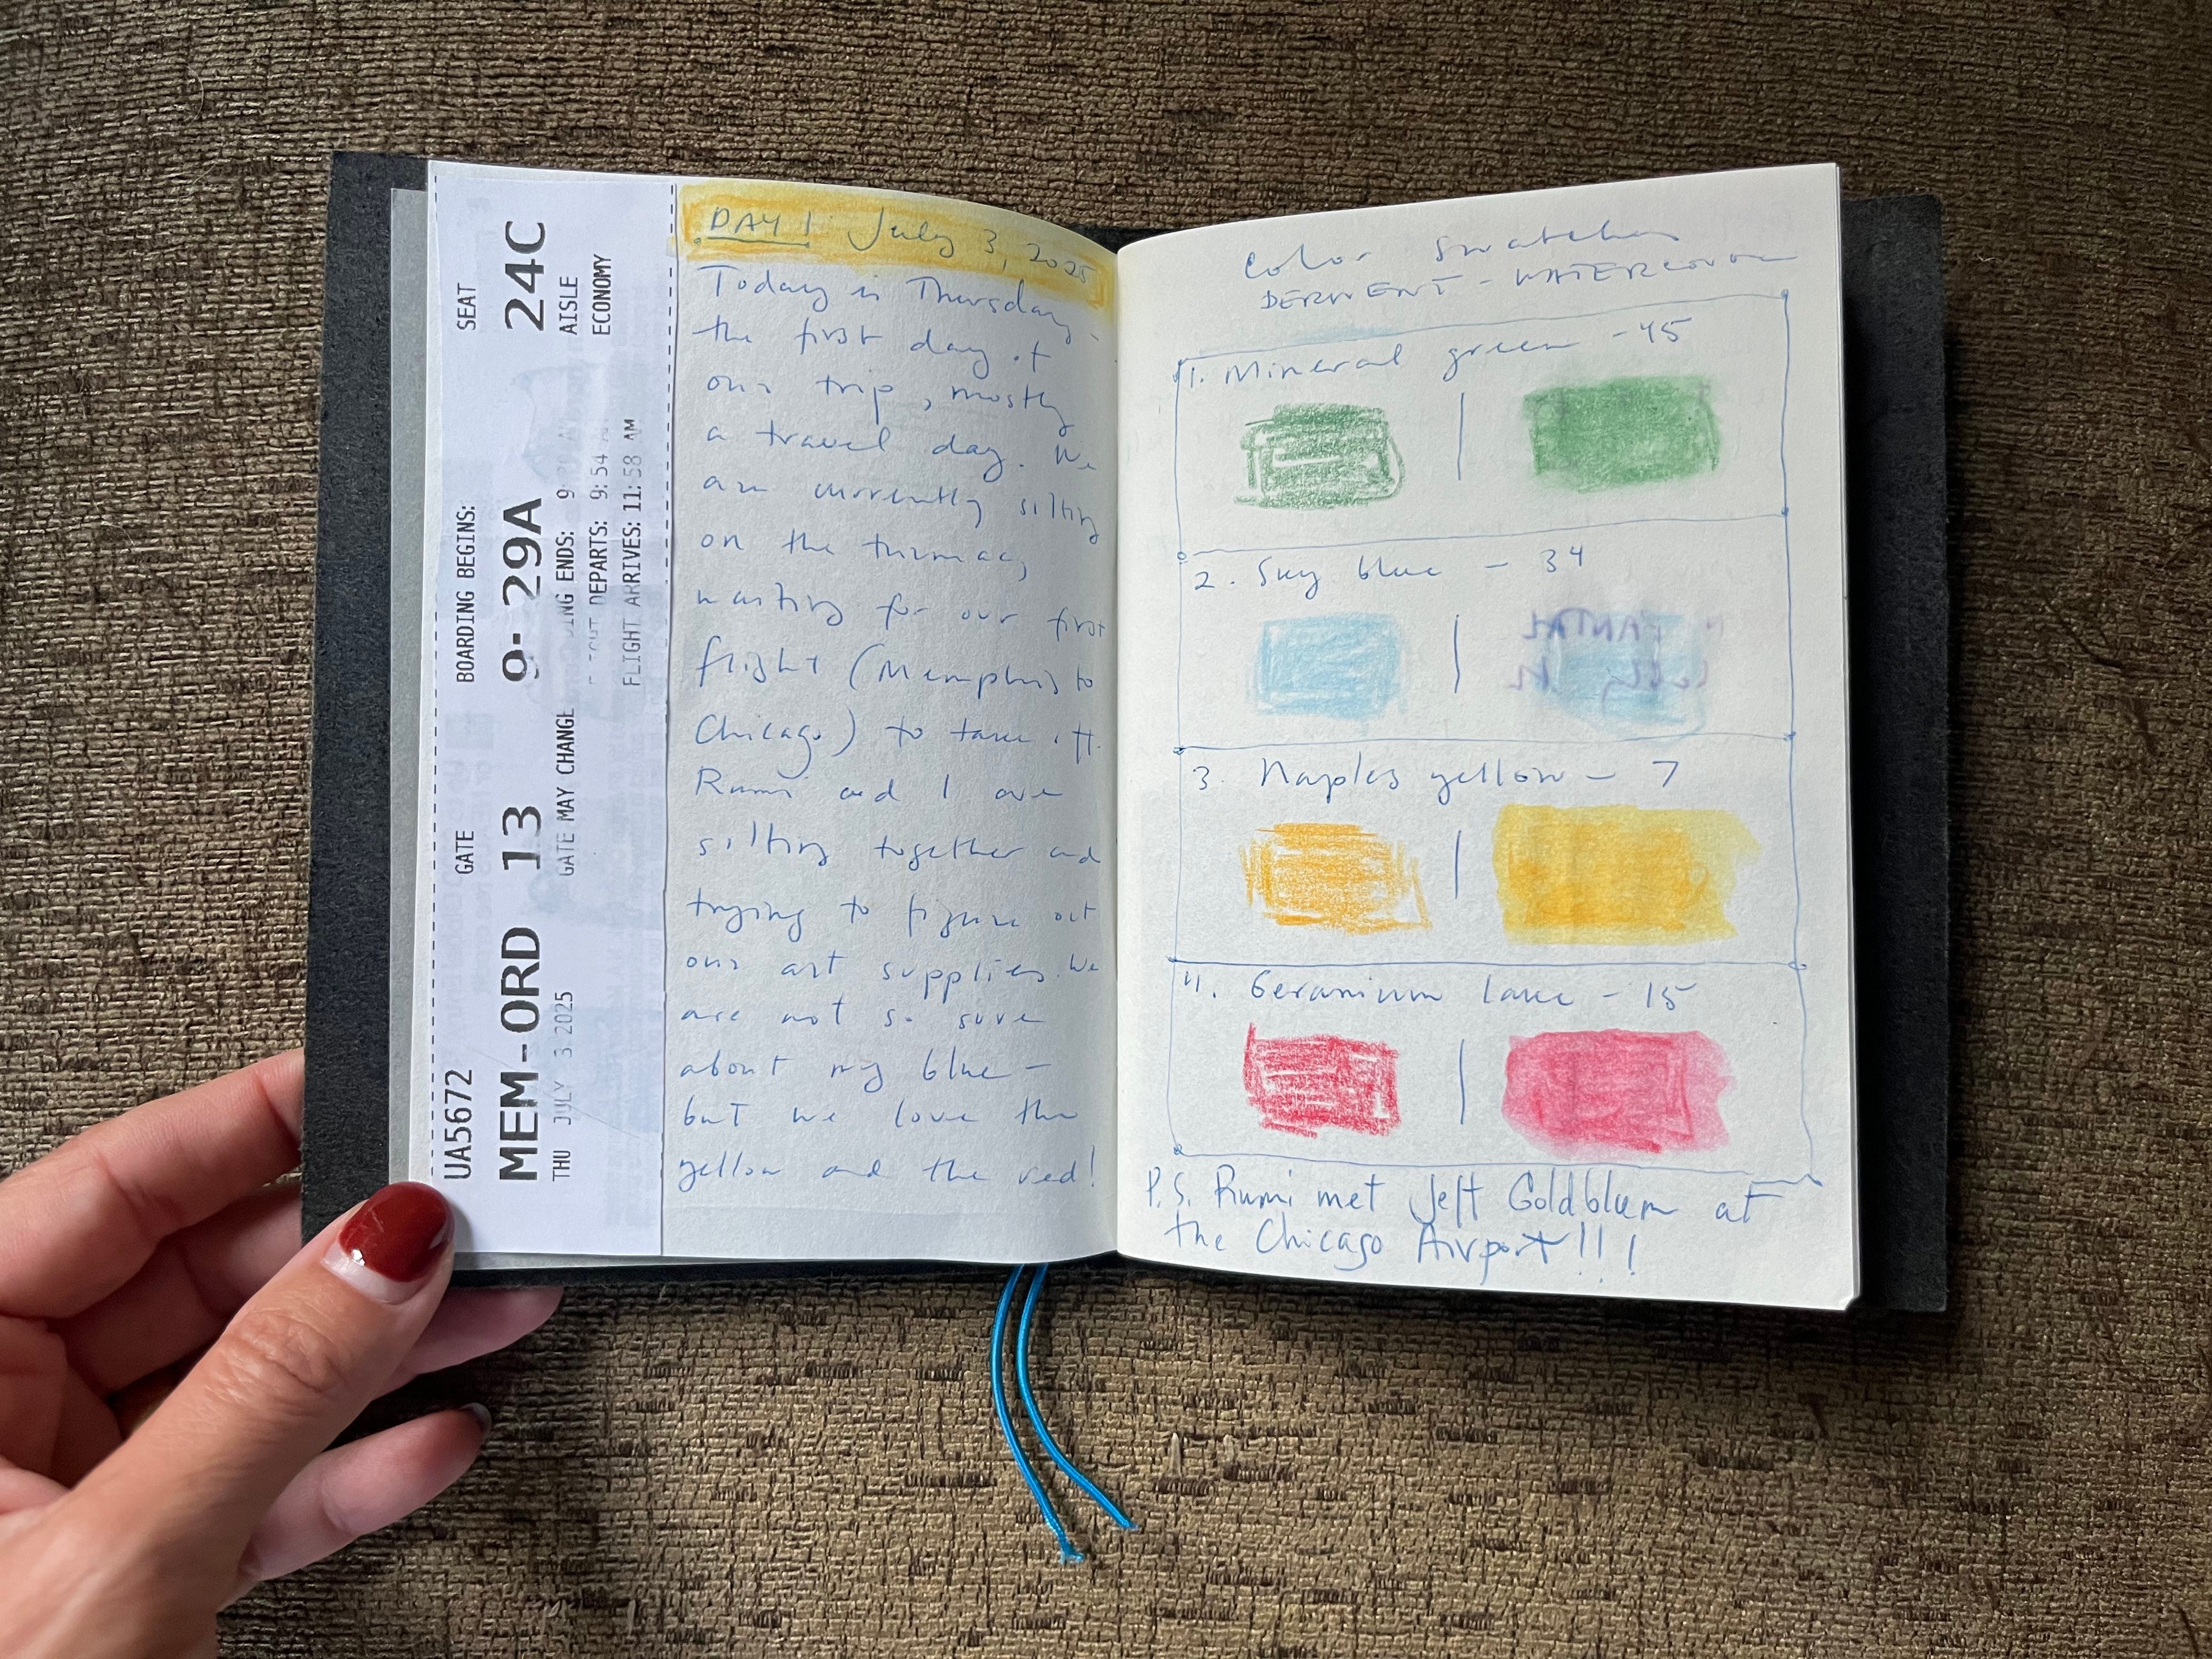 UA5672
MEM-ORD 13 9:29A 24C
GATE BOARDING BEGINS: SEAT
THU JULY 3 2025 GATE MAY CHANGE ING ENDS: 9 AISLE
DEPARTS: 9:54 ECONOMY
FLIGHT ARRIVES: 11:58 AM
DAY 1: July 3, 2025
Today is Thursday -
the first day of
our trip, mostly
a travel day. We
are currently sitting
on the turmac,
waiting for our first
flight (Memphis to
Chicago) to take off.
Rumi and I are
sitting together and
trying to figure out
our art supplies. We
are not so sure
about my blue -
but we love the
yellow and the red!
Color Swatches
DERWENT - WATERCOLOUR
1. Mineral green - 45
2. Sky blue - 34
3. Naples yellow - 7
4. Geranium lake - 15
P.S. Rumi met Jeff Goldblum at
the Chicago Airport!!!